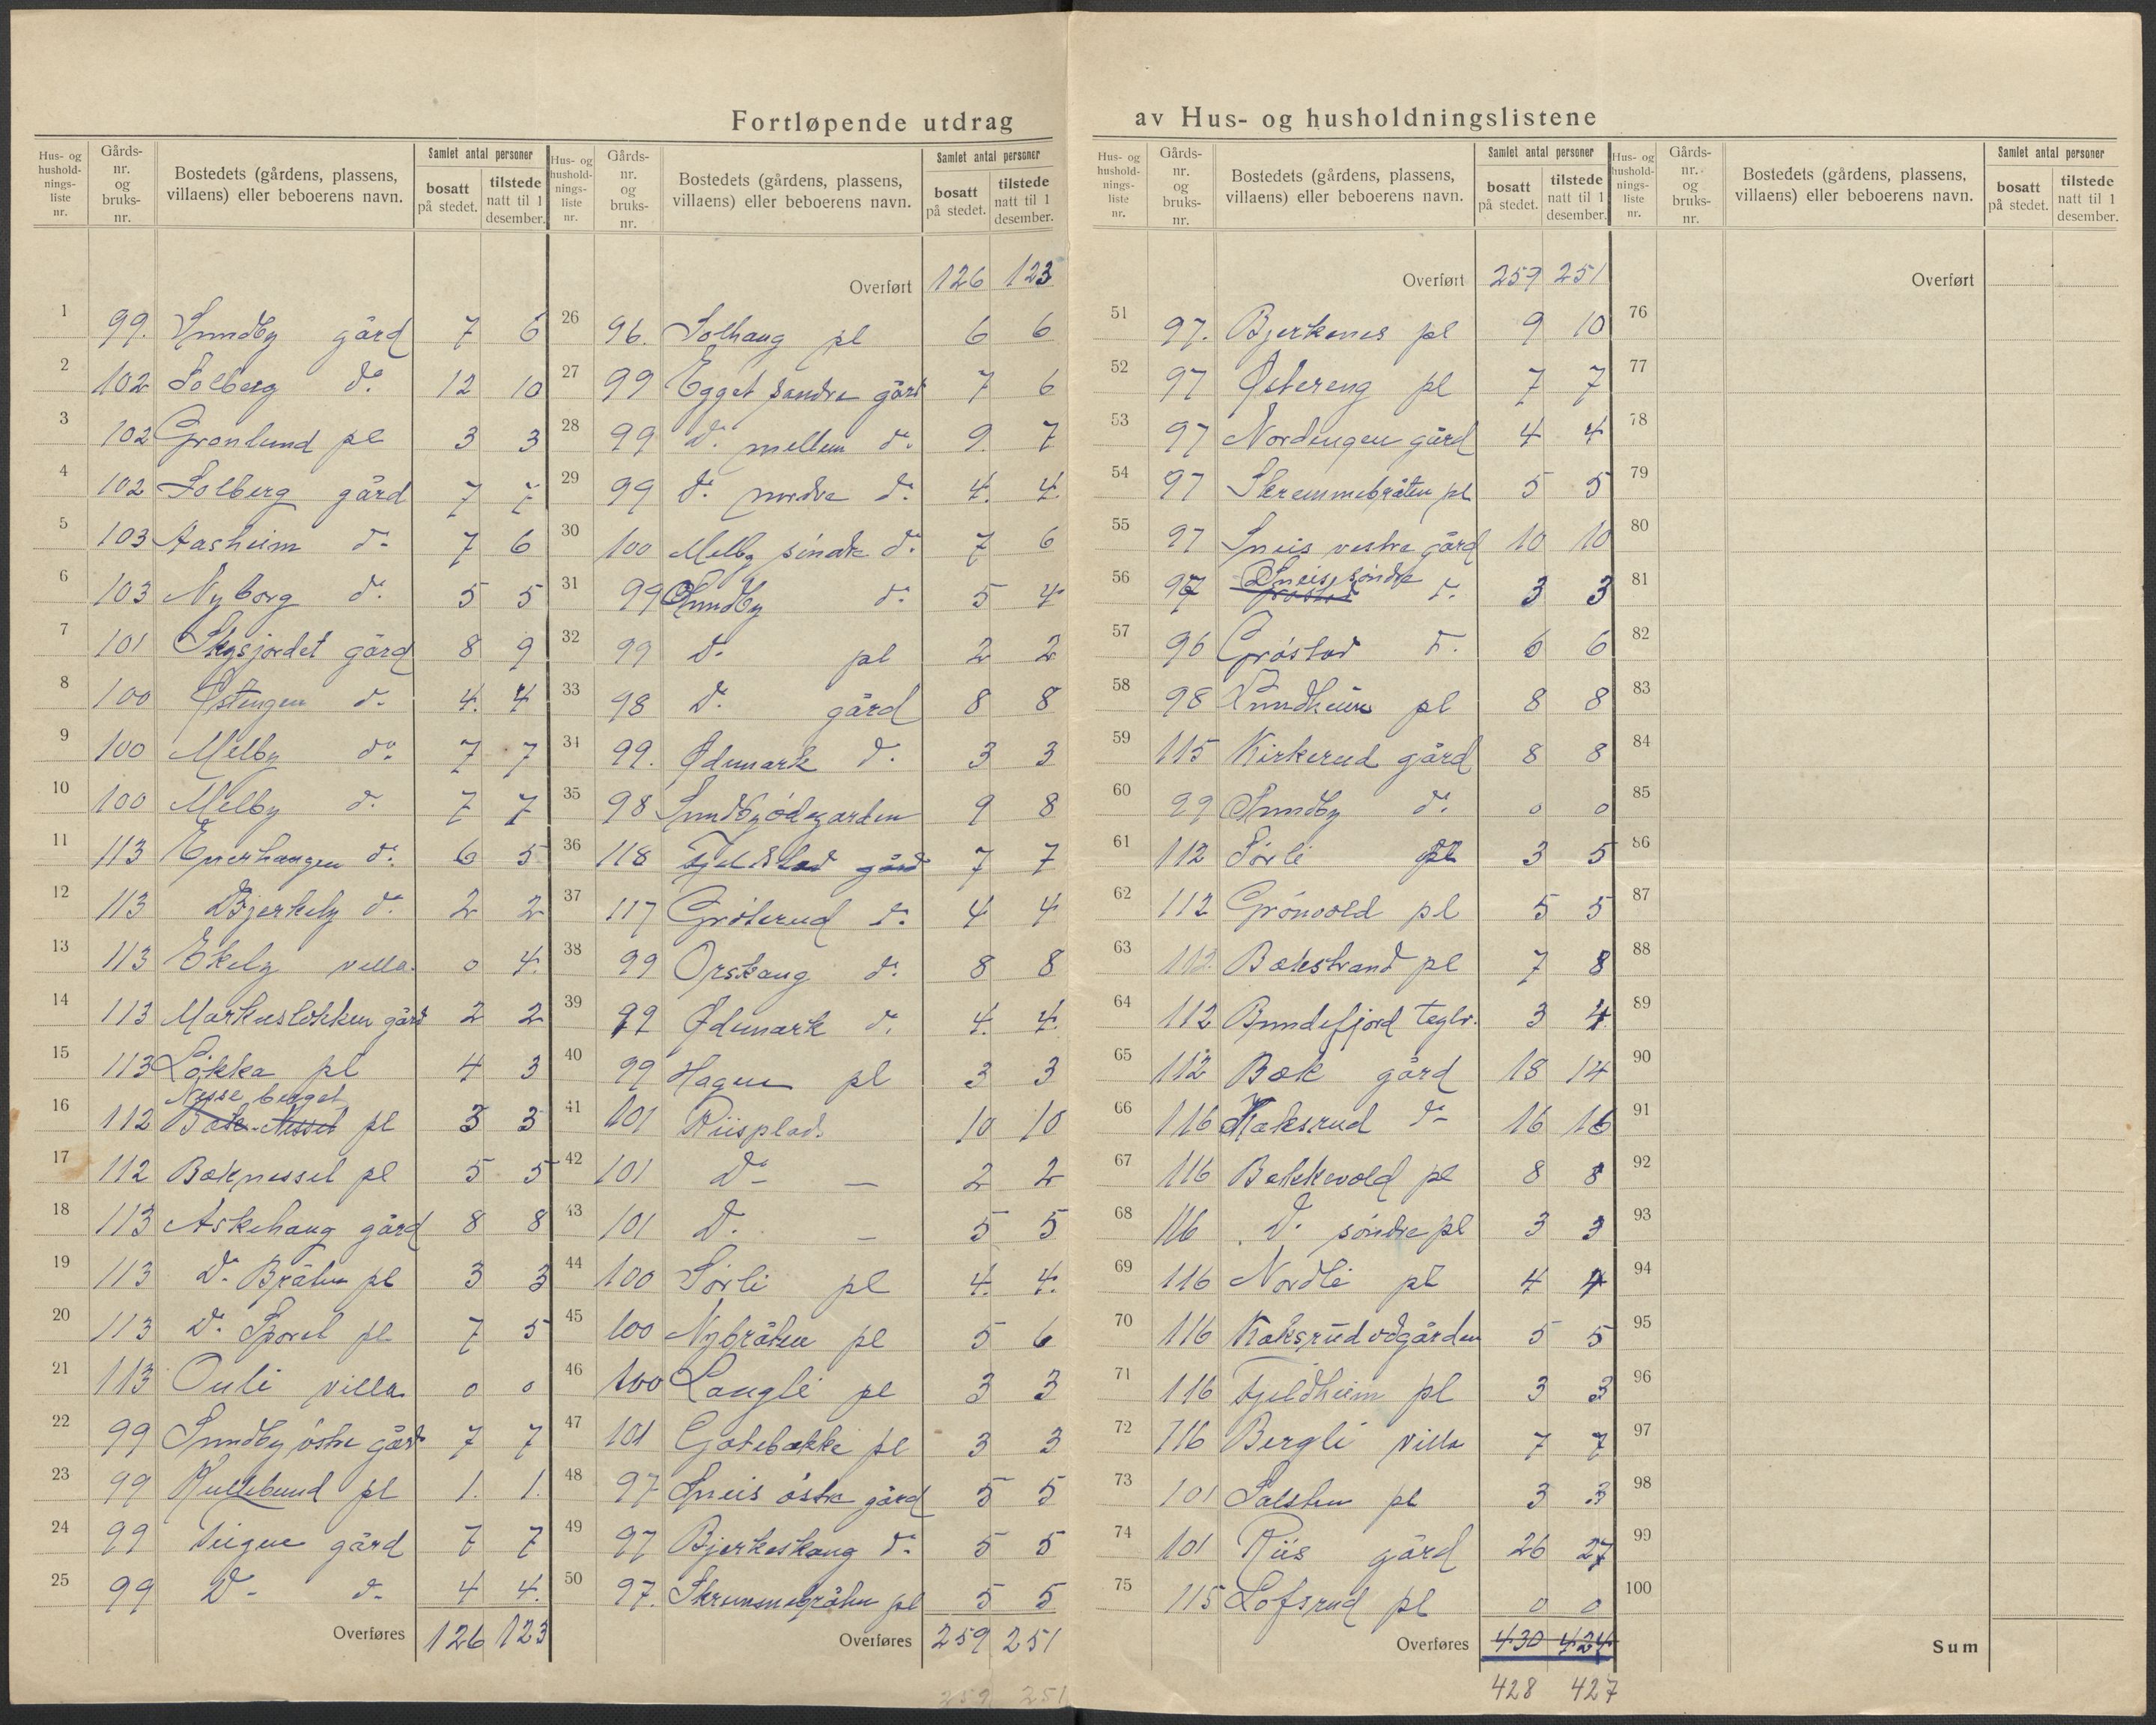 Fortløpende utdrag av Hus- og husholdningslistene
Hus- og husholdnings-liste nr. | Gårds-nr. og bruks-nr. | Bostedets (gårdens, plassens, villaens) eller beboerens navn. | Samlet antal personer: bosatt på stedet. | tilstede natt til 1 desember.
1 99. Sundby gård 7 6
2 102 Solberg do 12 10
3 102 Grønlund pl 3 3
4 102 Solberg gård 7 7
5 103 Aasheim do 7 6
6 103 Nyborg do 5 5
7 101 gård 8 9
8 100 Østengen do 4. 4
9 100 Melby do 7 7
10 100 Melby do 7 7
11 113 do 6 5
12 113 Bjerkely do 2 2
13 113 Ekely villa 0 4.
14 113 Markusløkken gård 2 2
15 113 Løkka pl 4 3
16 112 Nesseberget pl 3 3
17 112 Bæknesset pl 5 5
18 113 Askehaug gård 8 8
19 113 Do Bråten pl 3 3
20 113 Do pl 7 5
21 113 villa 0 0
22 99 Sundby østre gård 7 7
23 99 pl 1. 1.
24 99 gård 7 7
25 99 Do do 4 4.
Overføres 126 123
Hus- og husholdnings-liste nr. | Gårds-nr. og bruks-nr. | Bostedets (gårdens, plassens, villaens) eller beboerens navn. | Samlet antal personer: bosatt på stedet. | tilstede natt til 1 desember.
Overført 126 123
26 96. Solhaug pl 6 6
27 99 Egget søndre gård 7 6
28 99 Do mellem do 9. 7
29 99 do nordre do 4. 4.
30 100 Melby søndre do 7 6
31 99 Sundby do 5 4
32 99 do pl 2 2
33 98 do gård 8 8
34 99. Ødemark do 3 3
35 98 Sundbyødegarden 9 8
36 118 Fjeldstad gård 7 7
37 117 Grøterud do 4 4
38 99 do 8 8
39 99 Ødemark do 4. 4.
40 99 Hagen pl 3 3
41 101 Riisplad. 10 10
42 101 Do — 2 2
43 101 Do — 5 5
44 100 Sørli pl 4. 4.
45 100 Nybråten pl 5 6
46 100 Langli pl 3 3
47 101 pl 3 3
48 97 Sneis østre gård 5 5
49 97 Bjerkeskaug do 5 5
50 97. Skrummebråten pl 5 5
Overføres 259 251
259 251
Hus- og husholdnings-liste nr. | Gårds-nr. og bruks-nr. | Bostedets (gårdens, plassens, villaens) eller beboerens navn. | Samlet antal personer: bosatt på stedet. | tilstede natt til 1 desember.
Overført 259 251
51 97. Bjerkenes pl 9 10
52 97 Østereng pl 7 7
53 97 Nordengen gård 4 4
54 97 Skrummebråten pl 5 5
55 97 Sneis vestre gård 10 10
56 97 Sneis, søndre do 3 3
57 96 Grøstad do 6 6
58 98 Sundheim pl 8 8
59 115 Kirkerud gård 8 8
60 99 Sundby do 0 0
61 112 Sørli pl 3 5
62 112 Grønvold pl 5 5
63 112 Bækstrand pl 7 8
64 112 Bundefjord teglv. 3 4
65 112 Bæk gård 18 14
66 116 Kaksrud do 16 16
67 116 Bakkevold pl 8 8
68 116 Do søndre pl 3 3
69 116 Nordli pl 4 4
70 116 Kaksrudødgården 5 5
71 116 Fjeldheim pl 3 3
72 116 Bergli villa 7 7
73 101 pl 3 3
74 101 Riis gård 26 27
75 115 Lofsrud pl 0 0
Overføres 430 424
428 427
Hus- og husholdnings-liste nr. | Gårds-nr. og bruks-nr. | Bostedets (gårdens, plassens, villaens) eller beboerens navn. | Samlet antal personer: bosatt på stedet. | tilstede natt til 1 desember.
Overført
76
77
78
79
80
81
82
83
84
85
86
87
88
89
90
91
92
93
94
95
96
97
98
99
100
Sum